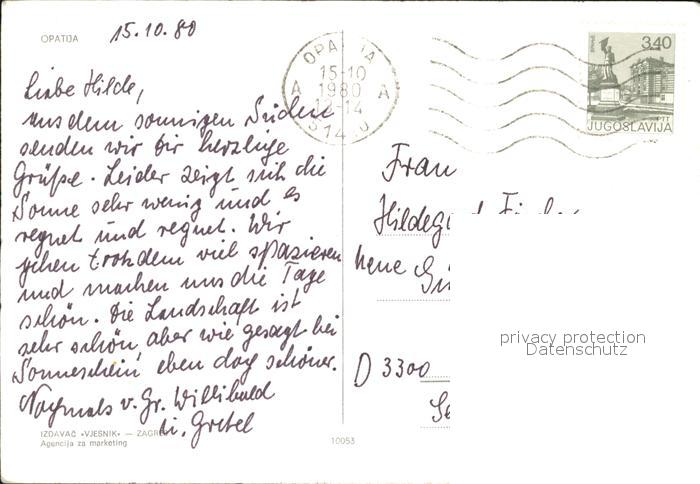 OPATIJA
15.10.80
Liebe Hilde,
aus dem sonnigen Süden
senden wir Dir herzlige
Grüße. Leider zeigt sich die
Sonne sehr wenig und es
regnet und regnet. Wir
gehen trotzdem viel spazieren
und machen uns die Tage
schön. Die Landschaft ist
sehr schön, aber wie gesagt bei
Sonneschein eben dog schöner.
Nogmals v. Gr. Willibald
u. Gretel
IZDAVAČ «VJESNIK» — ZAGREB
Agencija za marketing
10053
OPATIJA
15-10
1980
A A
13-14
514
3,40
PTT
JUGOSLAVIJA
Frau
Hildeg
neue
D 3300
privacy protection
Datenschutz